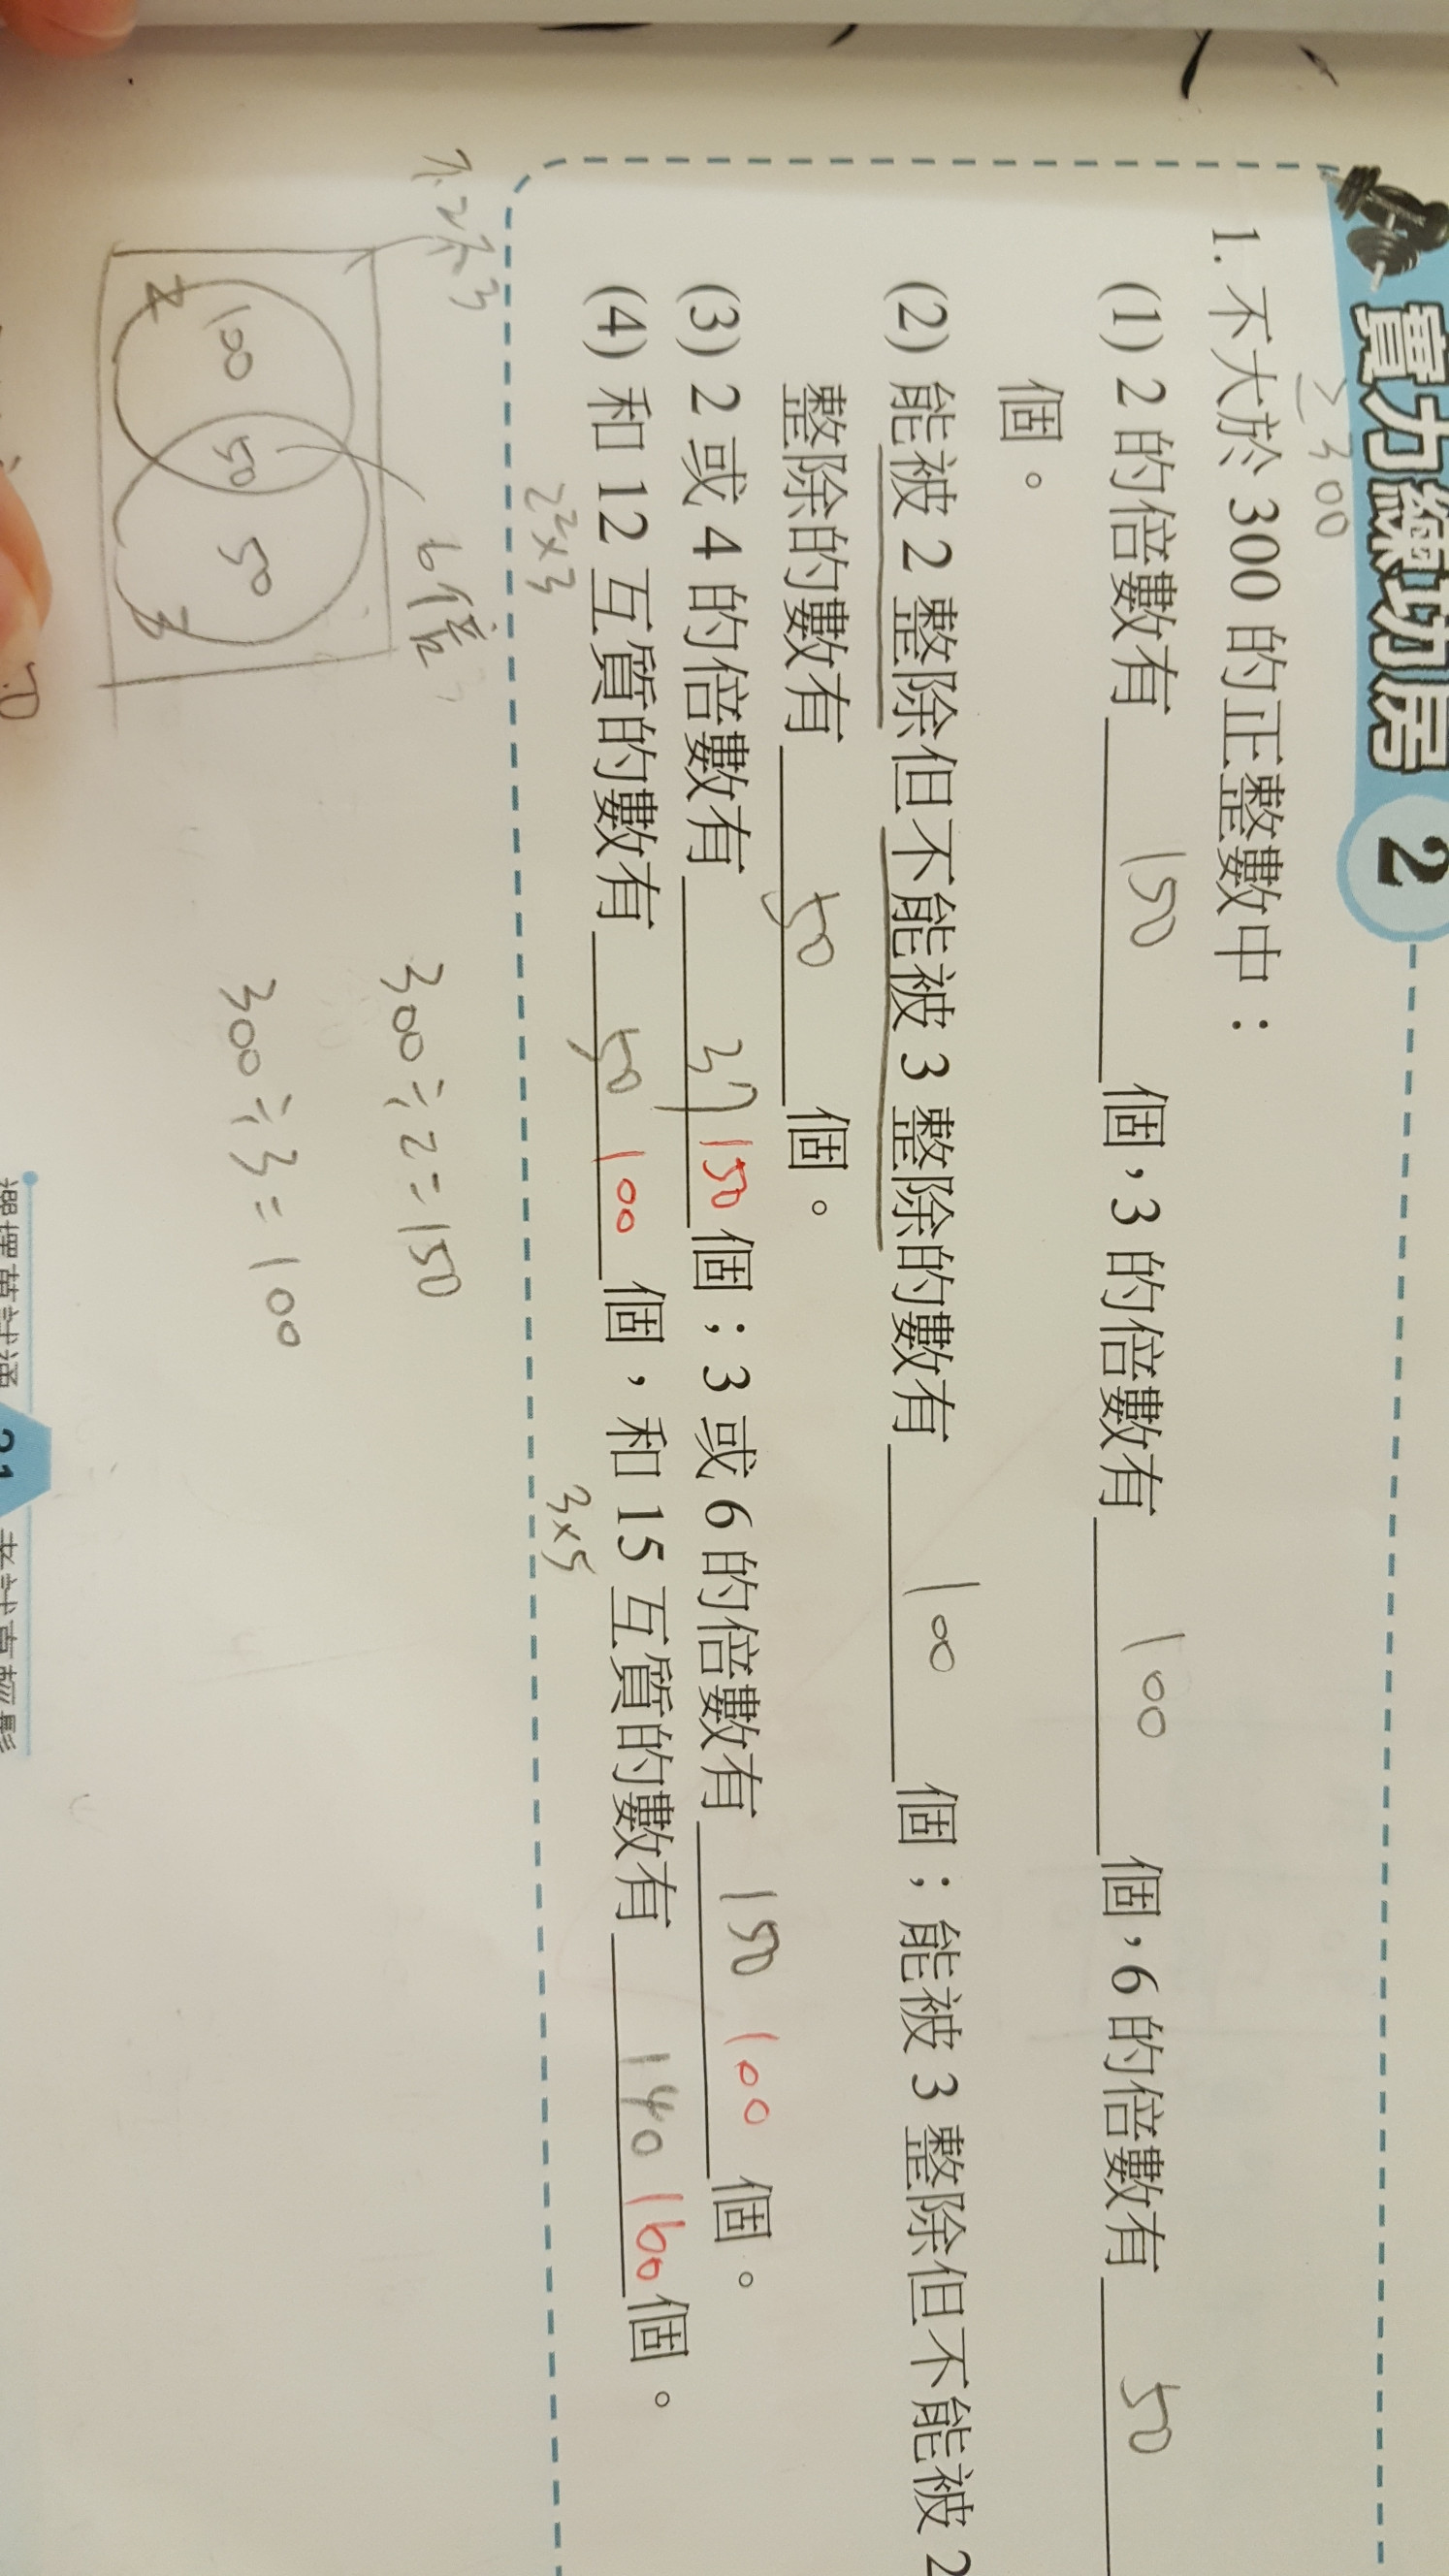 實力練功房 2
≥300
1. 不大於 300 的正整數中：
(1) 2 的倍數有 150 個，3 的倍數有 100 個，6 的倍數有 50
個。
(2) 能被 2 整除但不能被 3 整除的數有 100 個；能被 3 整除但不能被 2
整除的數有 50 個。
(3) 2 或 4 的倍數有 37 150 個；3 或 6 的倍數有 150 100 個。
(4) 和 12 互質的數有 50 100 個，和 15 互質的數有 140 160 個。
2²×3 3×5
不2不3
6倍
2 100 50 50 3
300÷2=150
300÷3=100